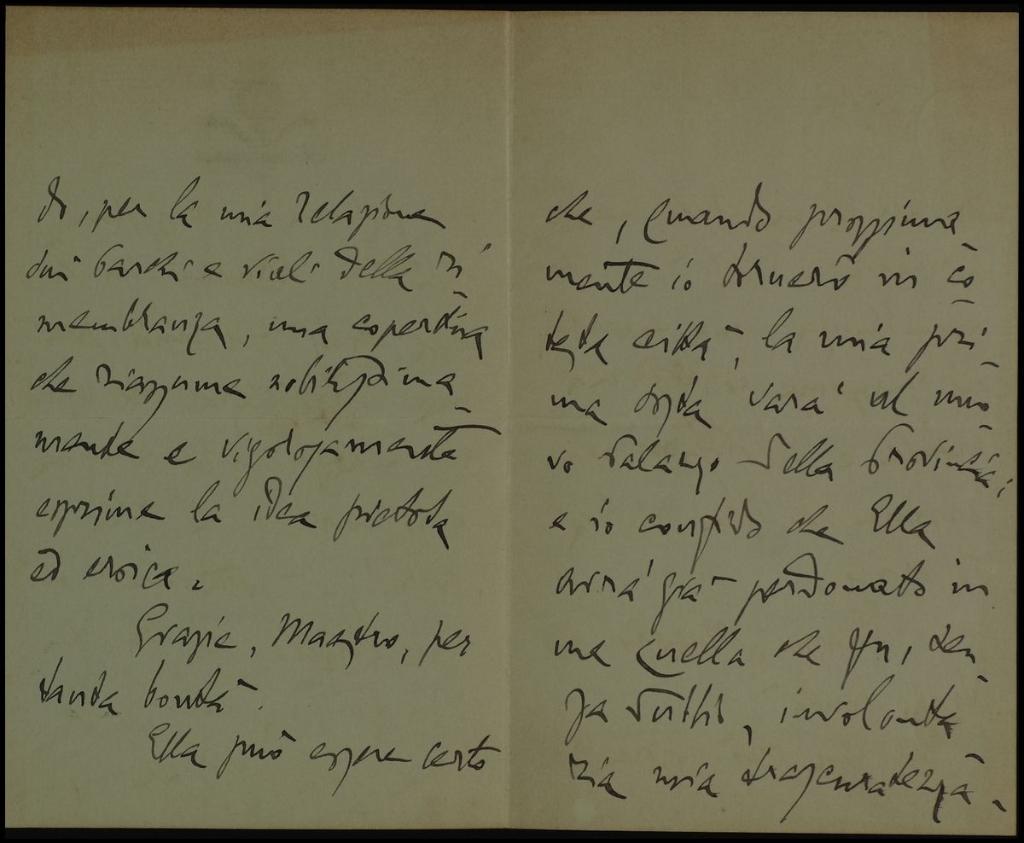 do, per la mia relazione
sui Parchi e viali della ri-
membranza, una copertina
che riassume nobilissima-
mente e vigorosamente
esprime la idea pietosa
ed eroica.
Grazie, Maestro, per
tanta bontà.
Ella può essere certo
che, quando prossima-
mente io tornerò in co-
testa città, la mia pri-
ma visita sarà al nuo-
vo Palazzo della Provincia;
e io confido che Ella
avrà già perdonato in
me quella che fu, sen-
za dubbio, involonta-
ria mia trascuratezza.